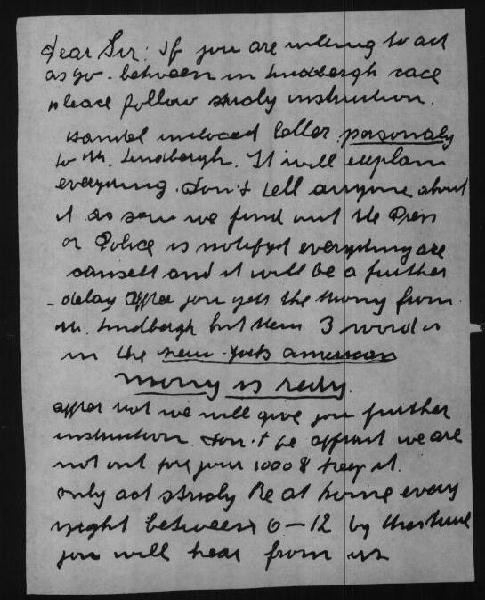 Dear Sir: If you are willing to act
as go-between in Lindbergh cace
pleace follow stricly instruction.
Handel incloced letter personaly
to Mr. Lindbergh. It will explan
everyting. don't tell anyone about
it as soon we find out the Press
or Police is notifyed everyting are
cansell and it will be a further
delay. Affter you gett the mony from
Mr. Lindbergh put them 3 words
in the new-york american
mony is redy
affter not we will give you further
instruction. don't be affrait we are
not out fore your 1000$ keep it.
only act stricly. Be at home every
night between 6-12 by this
you will hear from us